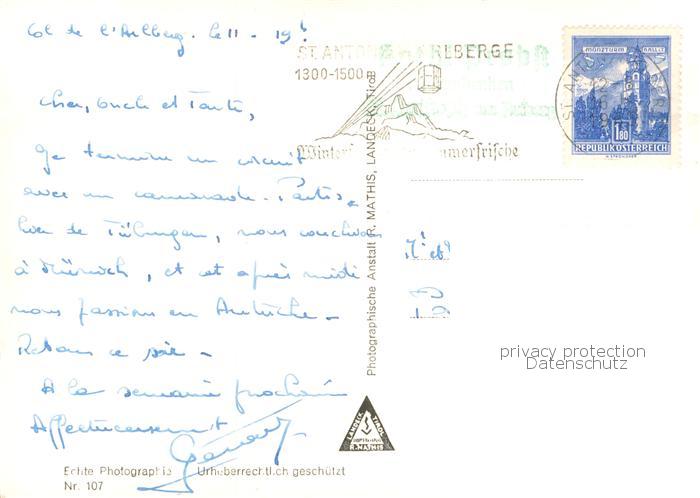 Col de l'Arlberg. le 11 - 19h
ST. ANTON ARLBERGE
1300-1500
MÜNZTURM HALL I.T.
1.80
REPUBLIK ÖSTERREICH
Cher, oncle et Tante,
Je termine un circuit
avec un camarade. Partis
hier de Tübingen, nous couchions
à Münich, et cet après midi
nous passions en Autriche -
Retour ce soir -
A la semaine prochaine
Affectueusement
Winter Sommerfrische
Photographische Anstalt R. MATHIS, LANDECK, Tirol
privacy protection
Datenschutz
LANDECK TIROL
R. MATHIS
Echte Photographie Urheberrechtlich geschützt
Nr. 107